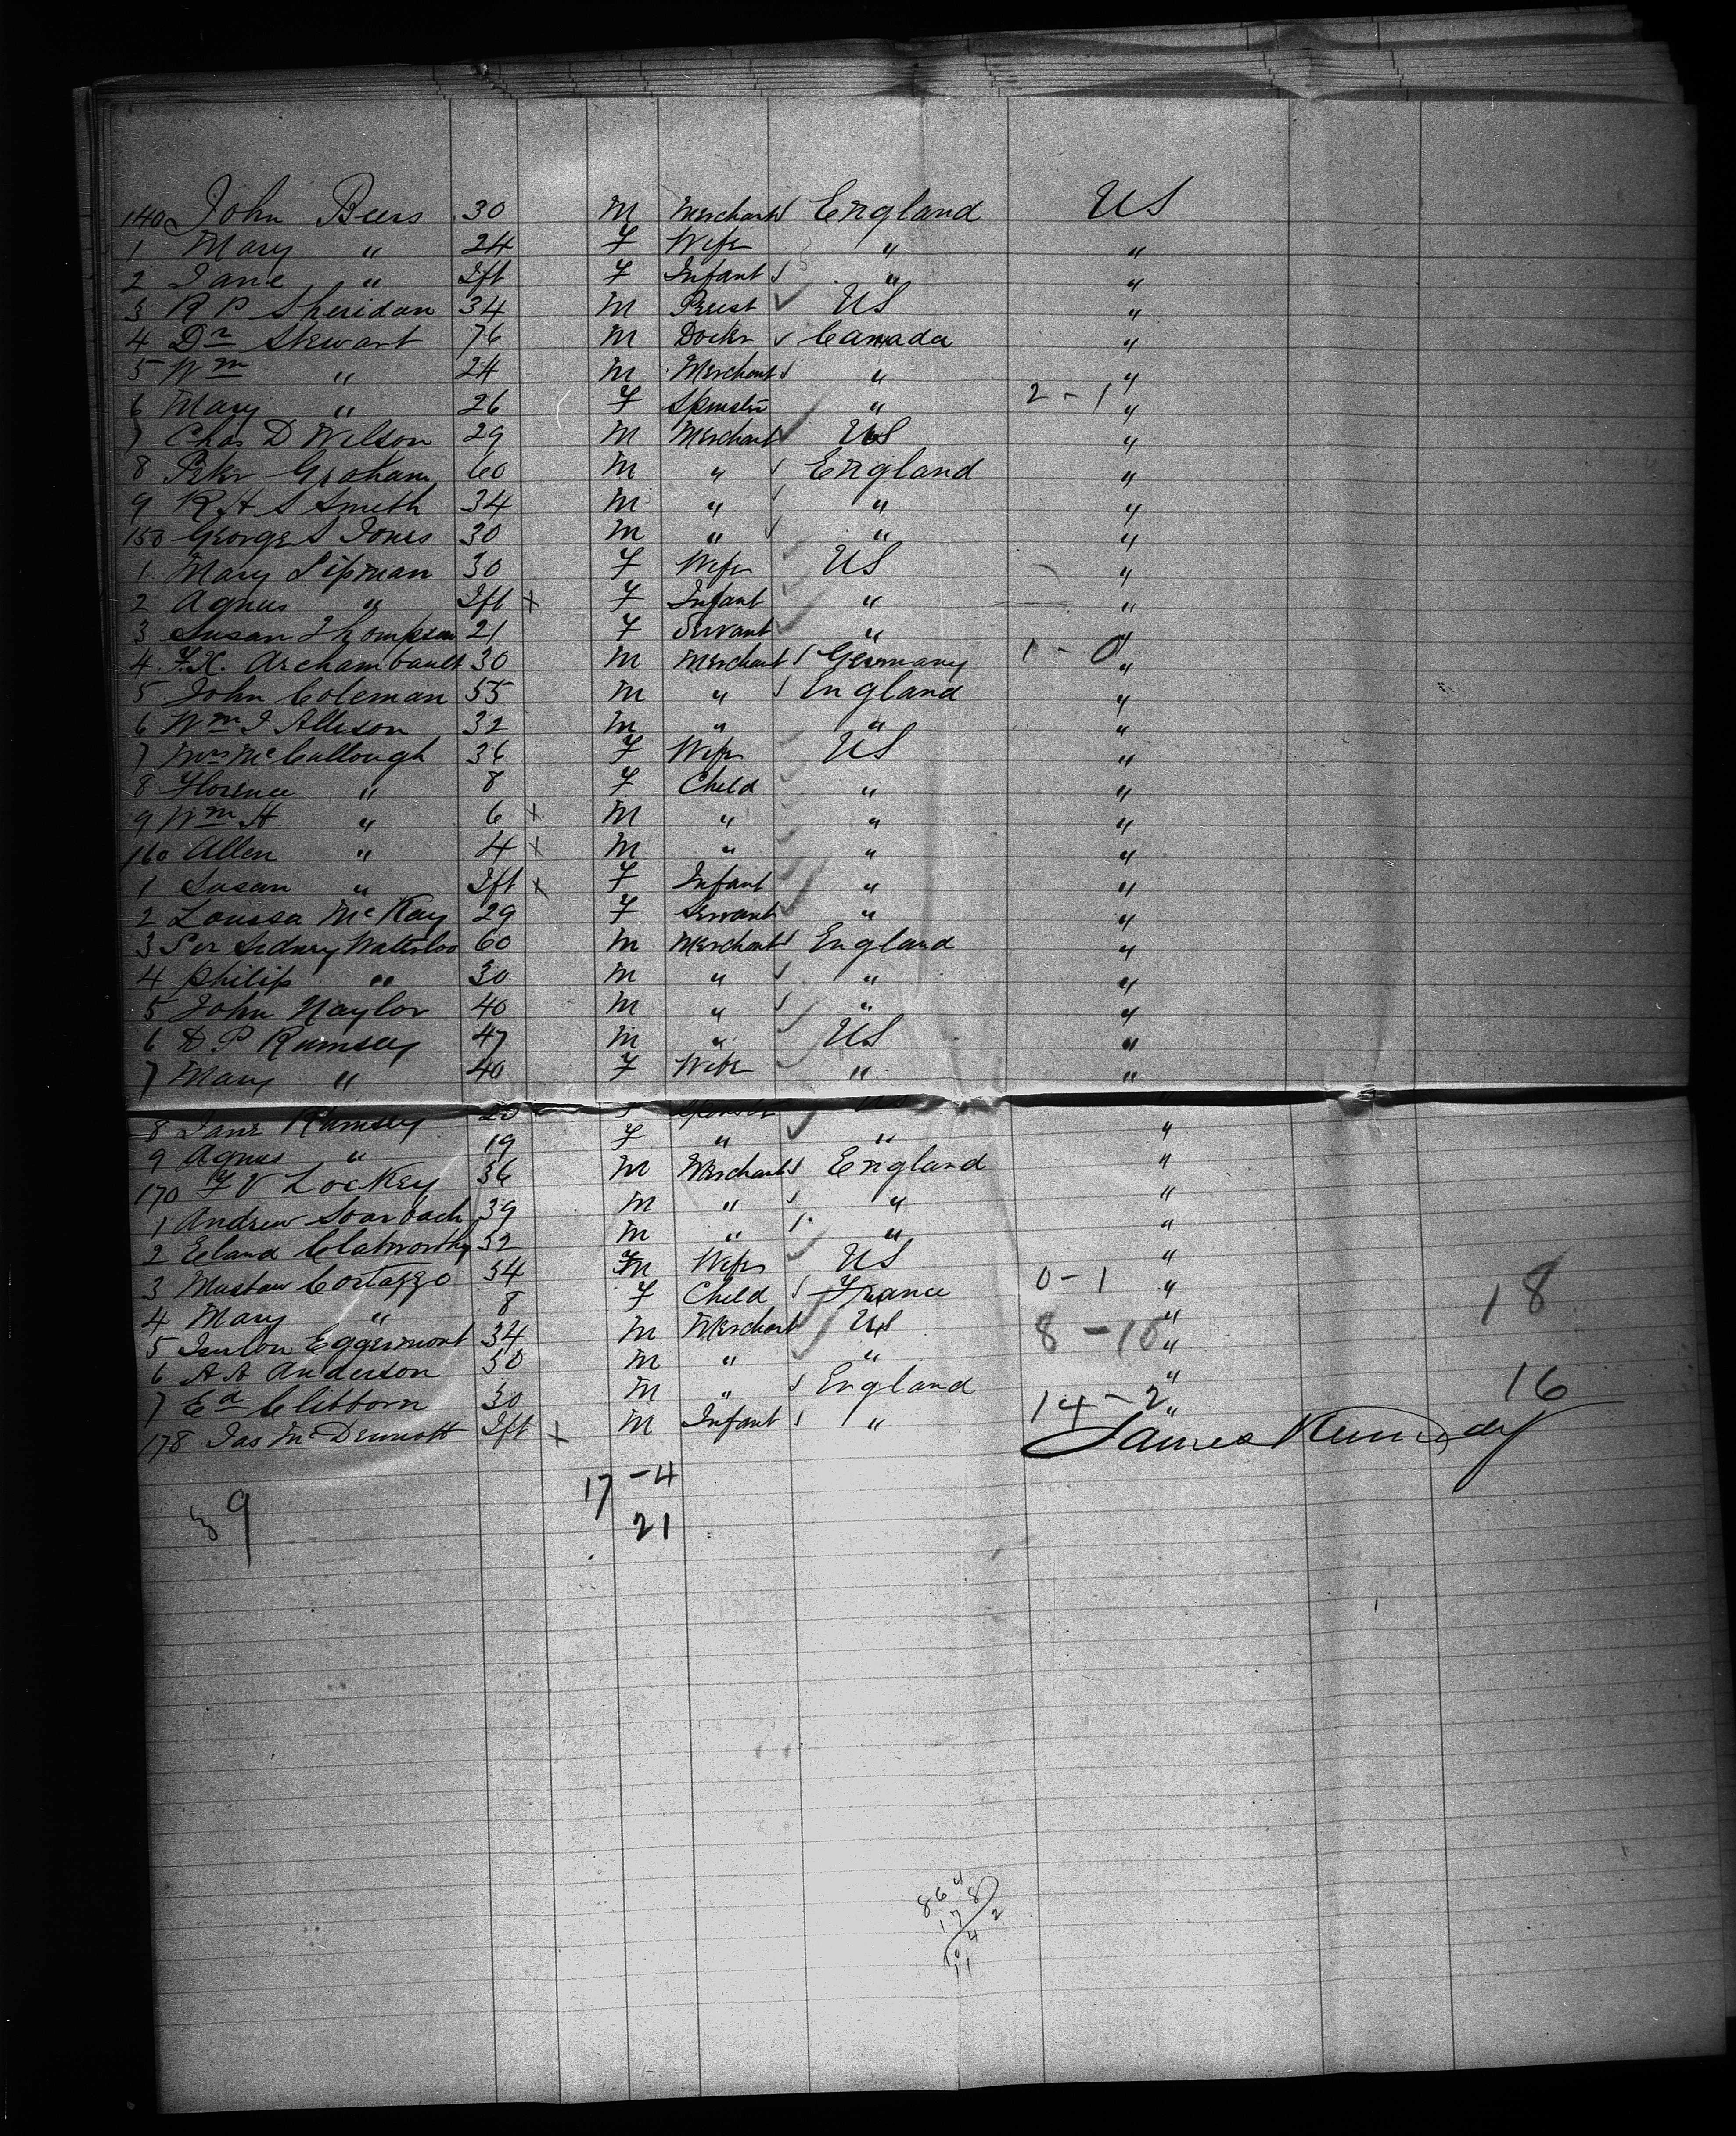 140 John Beers 30 M Merchant England US
1 Mary " 24 F Wife " "
2 Jane " Ift F Infant " "
3 R P Sheridan 34 M Preist US "
4 Dr Stewart 76 M Docter Canada "
5 Wm " 24 M Merchant " "
6 Mary " 26 F Spinster " 2 - 1 "
7 Chas D Wilson 29 M Merchant US "
8 Peter Graham 60 M " England "
9 R H S Smith 34 M " " "
150 George S Jones 30 M " " "
1 Mary Lipman 30 F Wife US "
2 Agnus " Ift x F Infant " "
3 Susan Thompson 21 F Servant " "
4 F.X. Archambault 30 M Merchant Germany 1 - 0 "
5 John Coleman 55 M " England "
6 Wm J Allison 32 M " " "
7 Mrs McCullough 36 F Wife US "
8 Florence " 8 F Child " "
9 Wm H " 6 x M " " "
160 Allen " 4 x M " " "
1 Susan " Ift x F Infant " "
2 Loussa McKay 29 F Servant " "
3 Ser Sidney Watterloo 60 M Merchant England "
4 Philip " 30 M " " "
5 John Naylor 40 M " " "
6 D P Rumsey 47 M " US "
7 Mary " 40 F Wife " "
8 Jane Rumsey F Spinster US "
9 Agnus " 19 F " " "
170 F V Lockey 36 M Merchant England "
1 Andrew Soarbach 39 M " " "
2 Eland Clatworthy 32 M " " "
3 Costazzo 34 Wife US "
4 Mary " 8 F Child France 0 - 1 "
5 Eggermont 34 M Merchant US " 18
6 A A Anderson 50 M " " 8 - 10 "
7 Ed Clibborn 30 M " England "
178 Jas McDermott Ift x M Infant " 14 - 2 " 16
James Kennedy
39 17 - 4
21